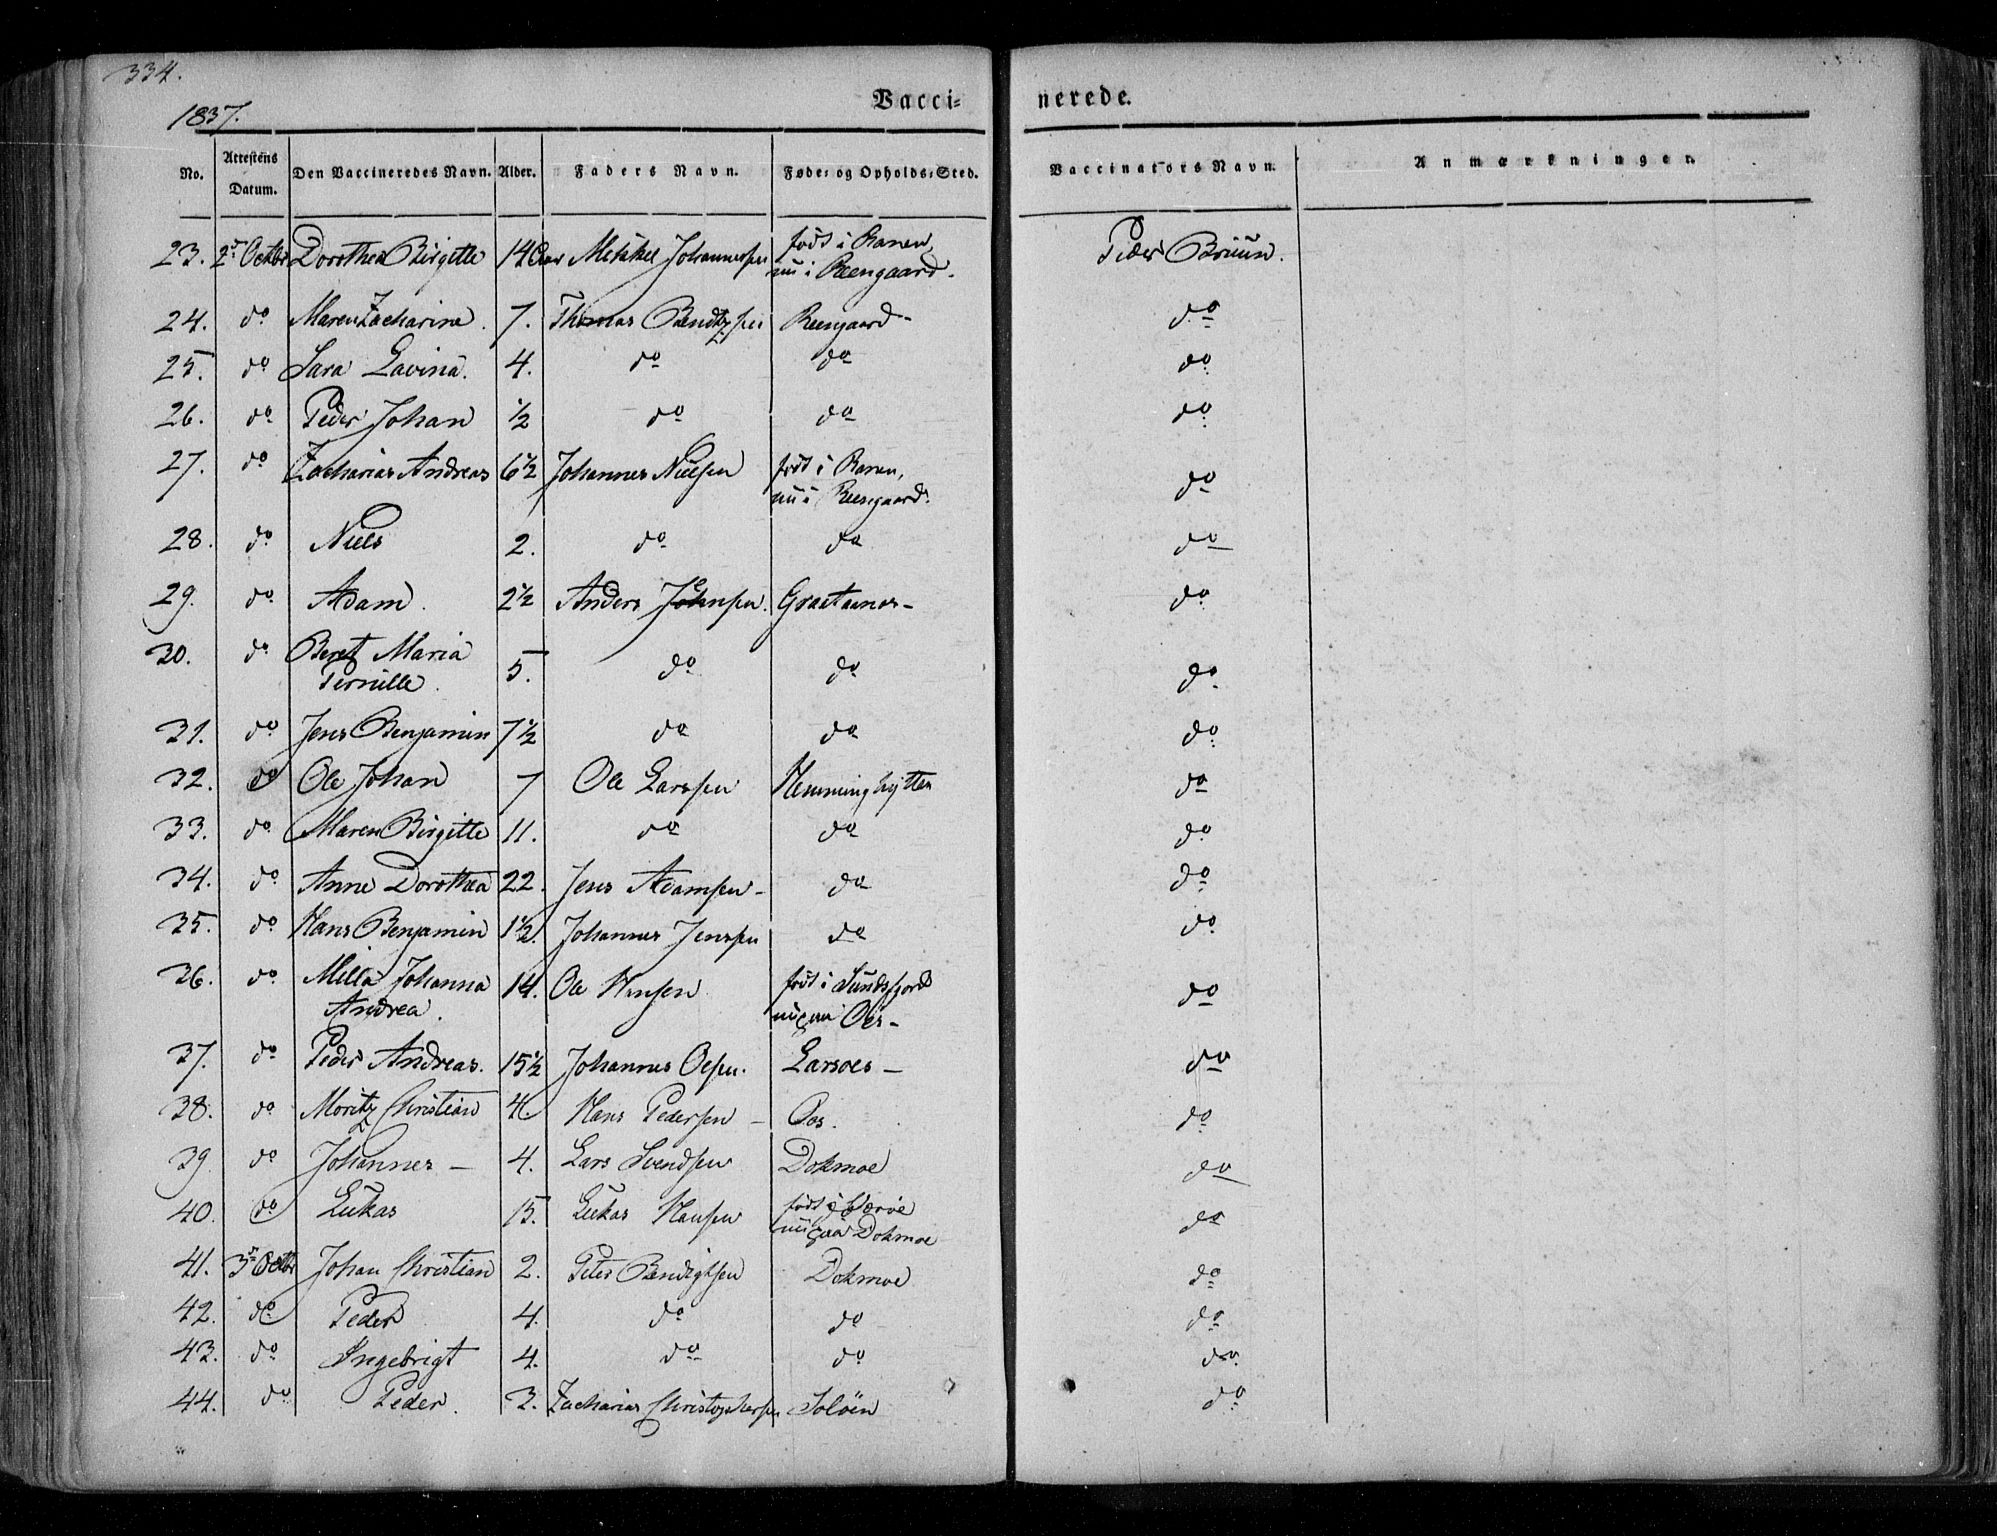 334.
1837.
Vacci= nerede.
No. Attestens Datum. Den Vaccineredes Navn. Alder. Faders Navn. Føde= og Opholds=Sted. Vaccinators Navn. Anmærkninger.
23. 2d Octbr Dorothea Birgitte 14 Aar Mikkel Johannessen født i Ranen, nu i Reengaard. Peder Bruun.
24. do Maren Zacharine. 7. Thomas Bendtzsen Reengaard- do
25. do Sara Lavina. 4. do do do
26. do Peder Johan ½ do do do
27. do Zacharias Andreas 6½ Johannes Nielsen født i Ranen, nu i Reengaard. do
28. do Niels 2. do do do
29. do Adam. 2½ Anders Johnsen. Graetaenes- do
30. do Beret Maria Pernille. 5. do do do
31. do Jens Benjamin 7½ do do do
32. do Ole Johan 7 Ole Larssen Hemminghytten do
33. do Maren Birgitte 11. do do do
34. do Anne Dorothea 22. Jens Adamsen- do do
35. do Hans Benjamin 1½. Johannes Jenssen do do
36. do Milla Johanna Andrea. 14. Ole Hansen født i Sundsfjord nu paa Oes- do
37. do Peder Andreas. 15½ Johannes Olsen. Larsoes- do
38. do Moritz Christian 4. Hans Pedersen- Oos. do
39 do Johannes- 4. Lars Svendsen Dokmoe do
40. do Lukas 15. Lukas Hansen født i Værøe nu paa Dokmoe do
41. 3d Octbr Johan Christian 2. Peter Bendigtsen Dokmoe do
42. do Peder 4. do do do
43. do Ingebrigt 4. do do do
44. do Peder. 3. Zacharias Christophersen Soløen do